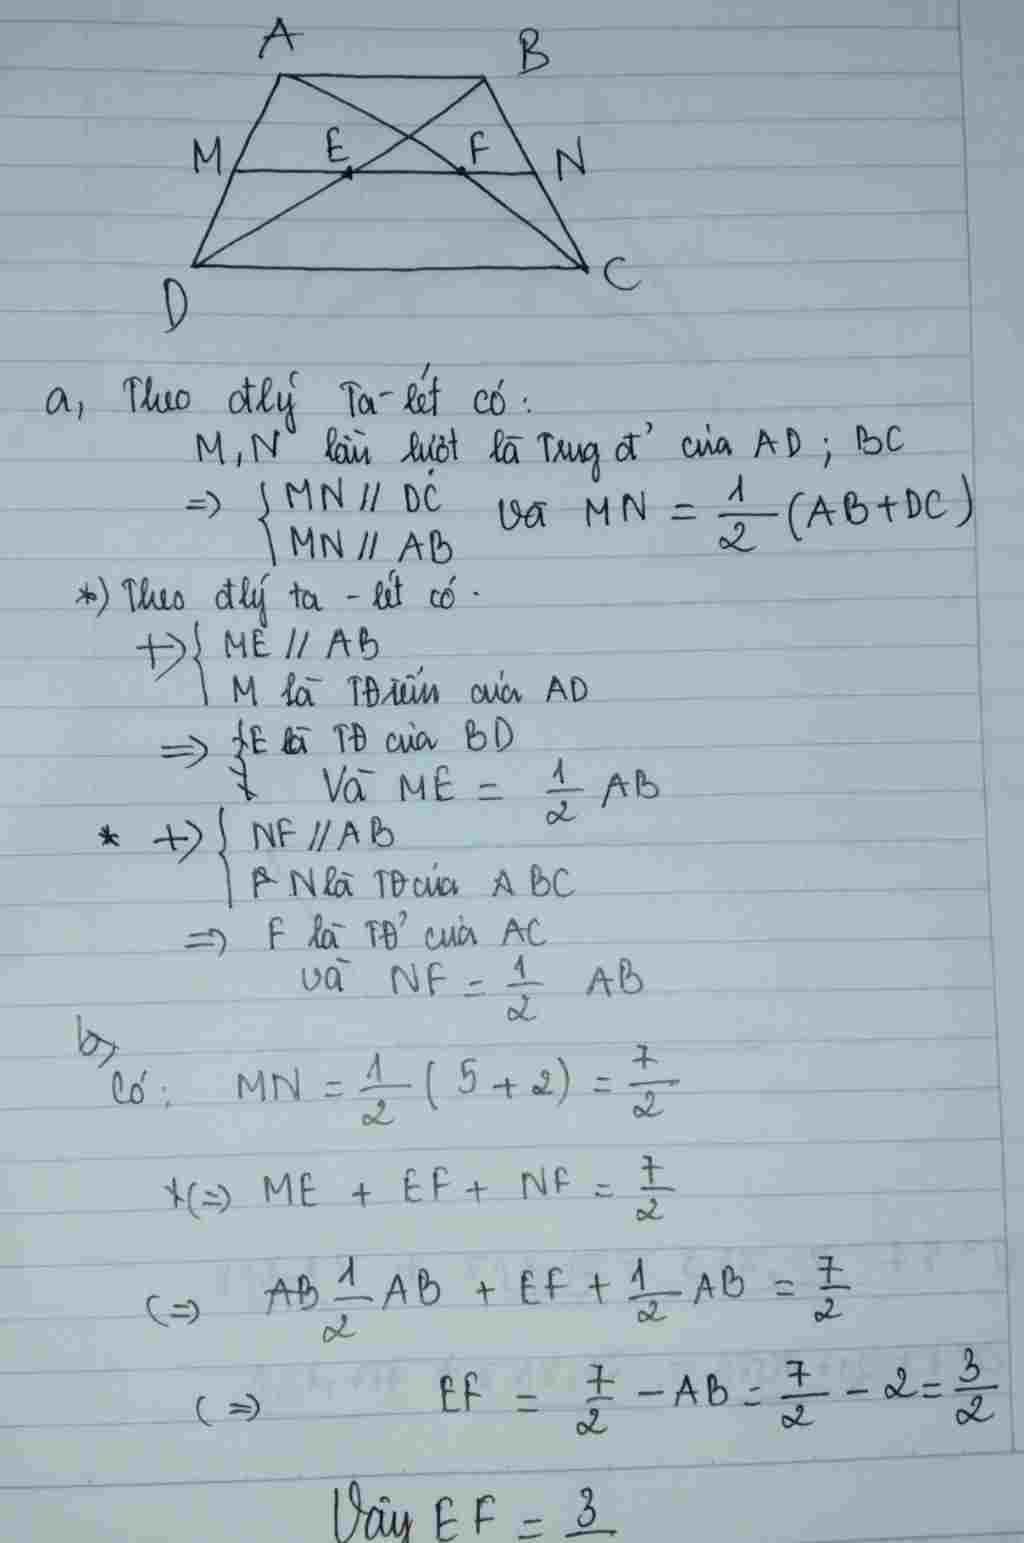 A
B
M
E
F
N
D
C
a, Theo đlý Ta-lét có:
M, N lần lượt là Trug đ' của AD; BC
=> { MN // DC và MN = 1/2 (AB + DC)
MN // AB
*) Theo đlý ta-lét có.
+) { ME // AB
M là TĐ của AD
=> E là TĐ của BD
Và ME = 1/2 AB
* +) { NF // AB
N là TĐ của BC
=> F là TĐ' của AC
và NF = 1/2 AB
b,
Có: MN = 1/2 (5 + 2) = 7/2
(=) ME + EF + NF = 7/2
(=) 1/2 AB + EF + 1/2 AB = 7/2
(=) EF = 7/2 - AB = 7/2 - 2 = 3/2
Vậy EF = 3